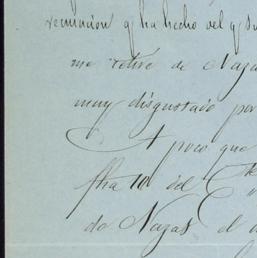 reunion q ha hecho del q su
me retiré de Naza
muy disgustado por
A poco que
fha 10 del
de Nazas el